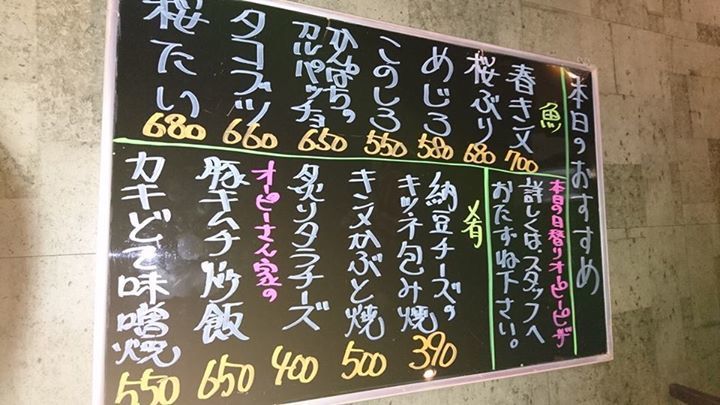 本日のおすすめ
魚
春きス 700
桜ぶり 680
めじろ 580
このしろ 550
かんぱちの
カルパッチョ 650
タコブツ 660
桜たい 680
本日の日替りオーピーピザ
詳しくはスタッフへ
おたずね下さい。
肴
納豆チーズの
キツネ包み焼 390
キンメかぶと焼 500
炙りタラチーズ 400
オーピーさん家の
豚キムチ炒飯 650
カキどて味噌焼 550